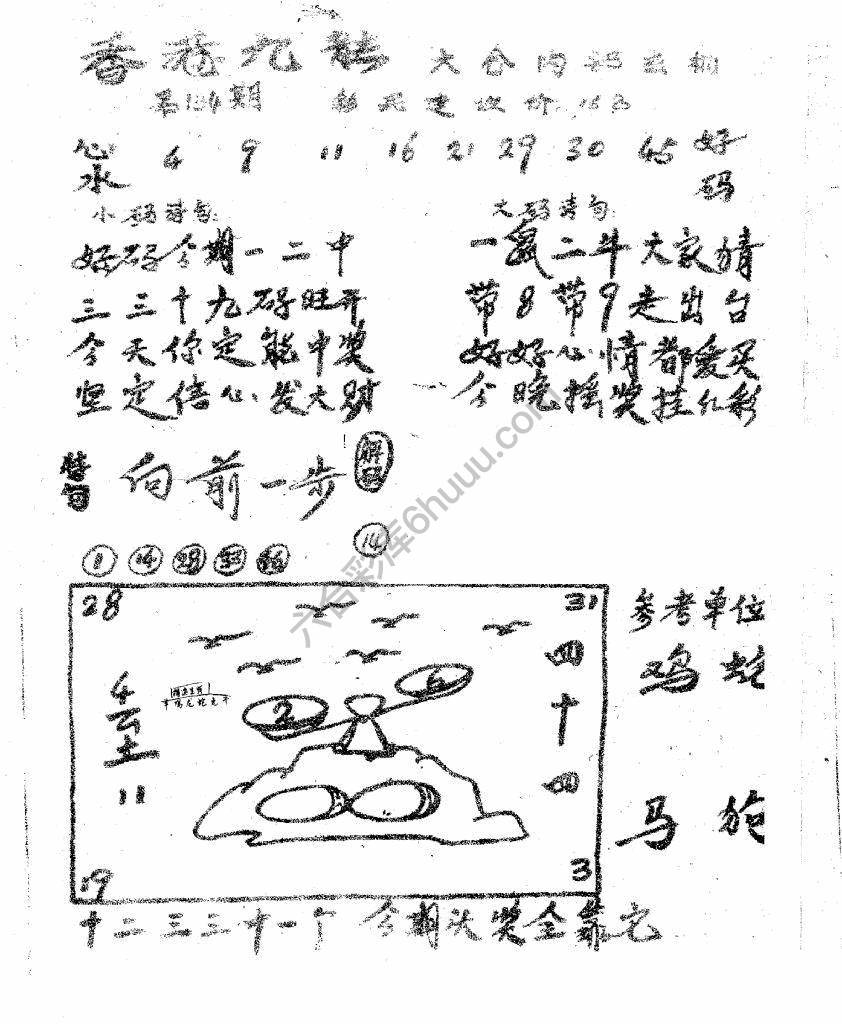 香港九龍 大会内部玄机
第134期
心水 4 9 11 16 21 29 30 45 好码
小码诗句: 大码诗句:
好码今期一二中
三三十九码旺开
今天你定能中奖
坚定信心发大财
一鼠二斗大家猜
带8带9走出台
好好心情都爱买
今晚摇奖挂红彩
特句 向前一步 解码
1 14 28 33 36 14
28 31
2 6
4
11
四十四
19 3
参考单位
鸡 蛇
马 狗
十二三三十一个 今期头奖全靠它
六合彩库6huuu.com